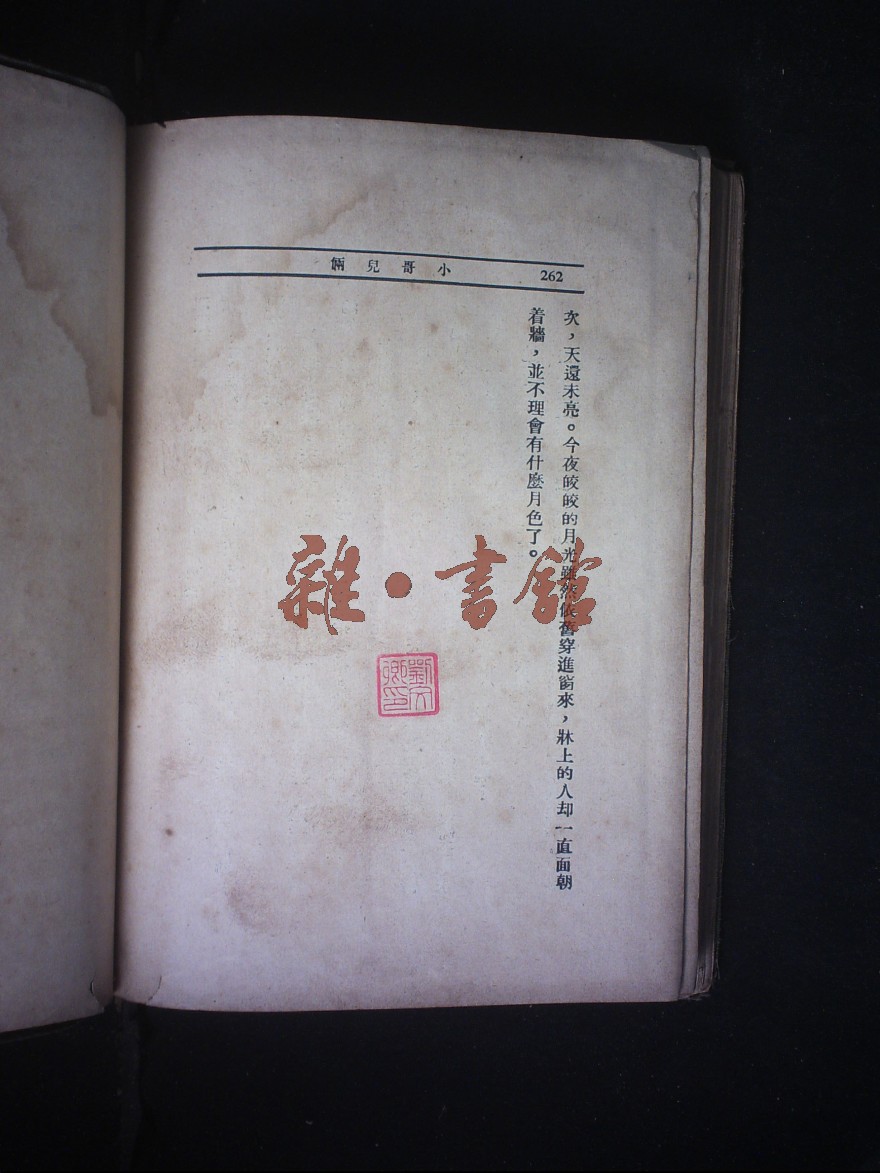 262
小哥兒倆
次，天還未亮。今夜皎皎的月光雖然依舊穿進窗來，牀上的人却一直面朝
着牆，並不理會有什麼月色了。
雜·書館
劉文
卿印